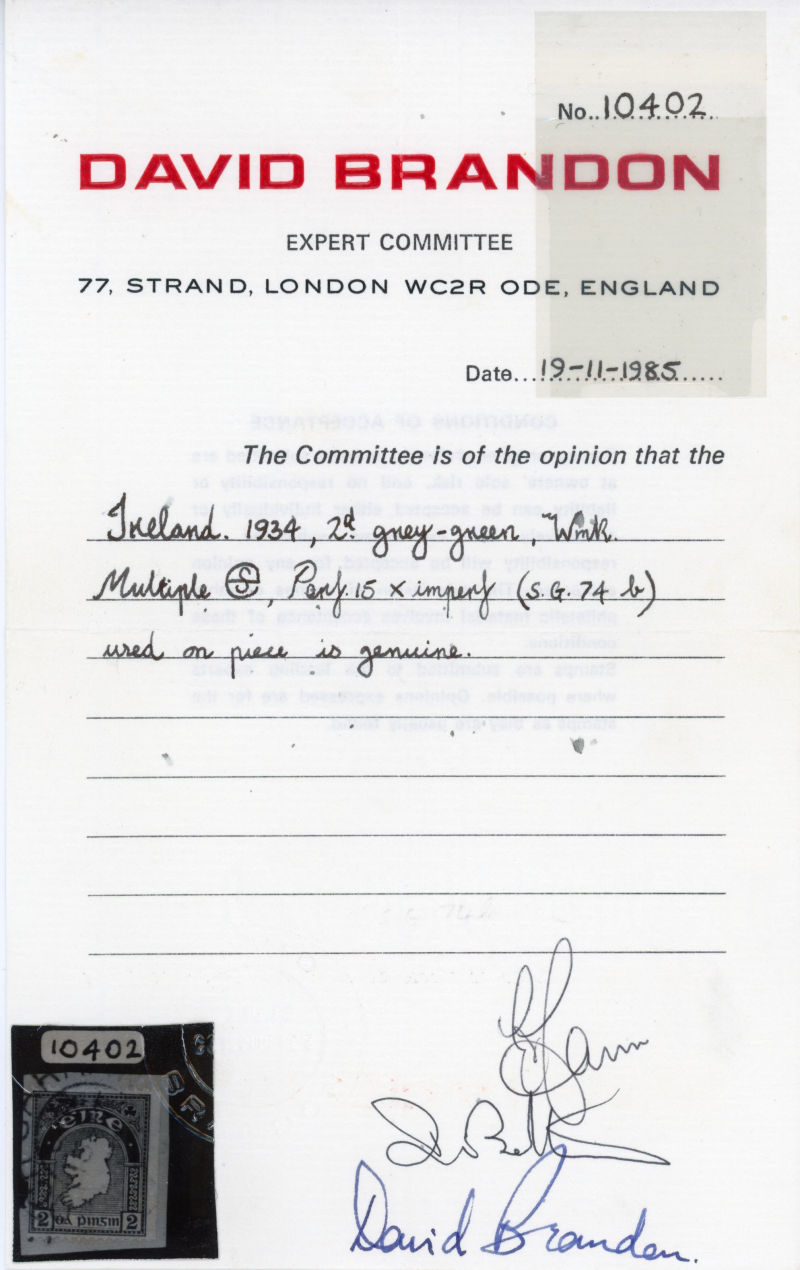 No..10402
DAVID BRANDON
EXPERT COMMITTEE
77, STRAND, LONDON WC2R ODE, ENGLAND
Date...19-11-1985.....
The Committee is of the opinion that the
Ireland. 1934, 2d grey-green, Wmk.
Multiple Ⓢ, Perf. 15 x imperf (S.G. 74 b)
used on piece is genuine.
David Brandon.
10402
éire
2 dá pinsin 2